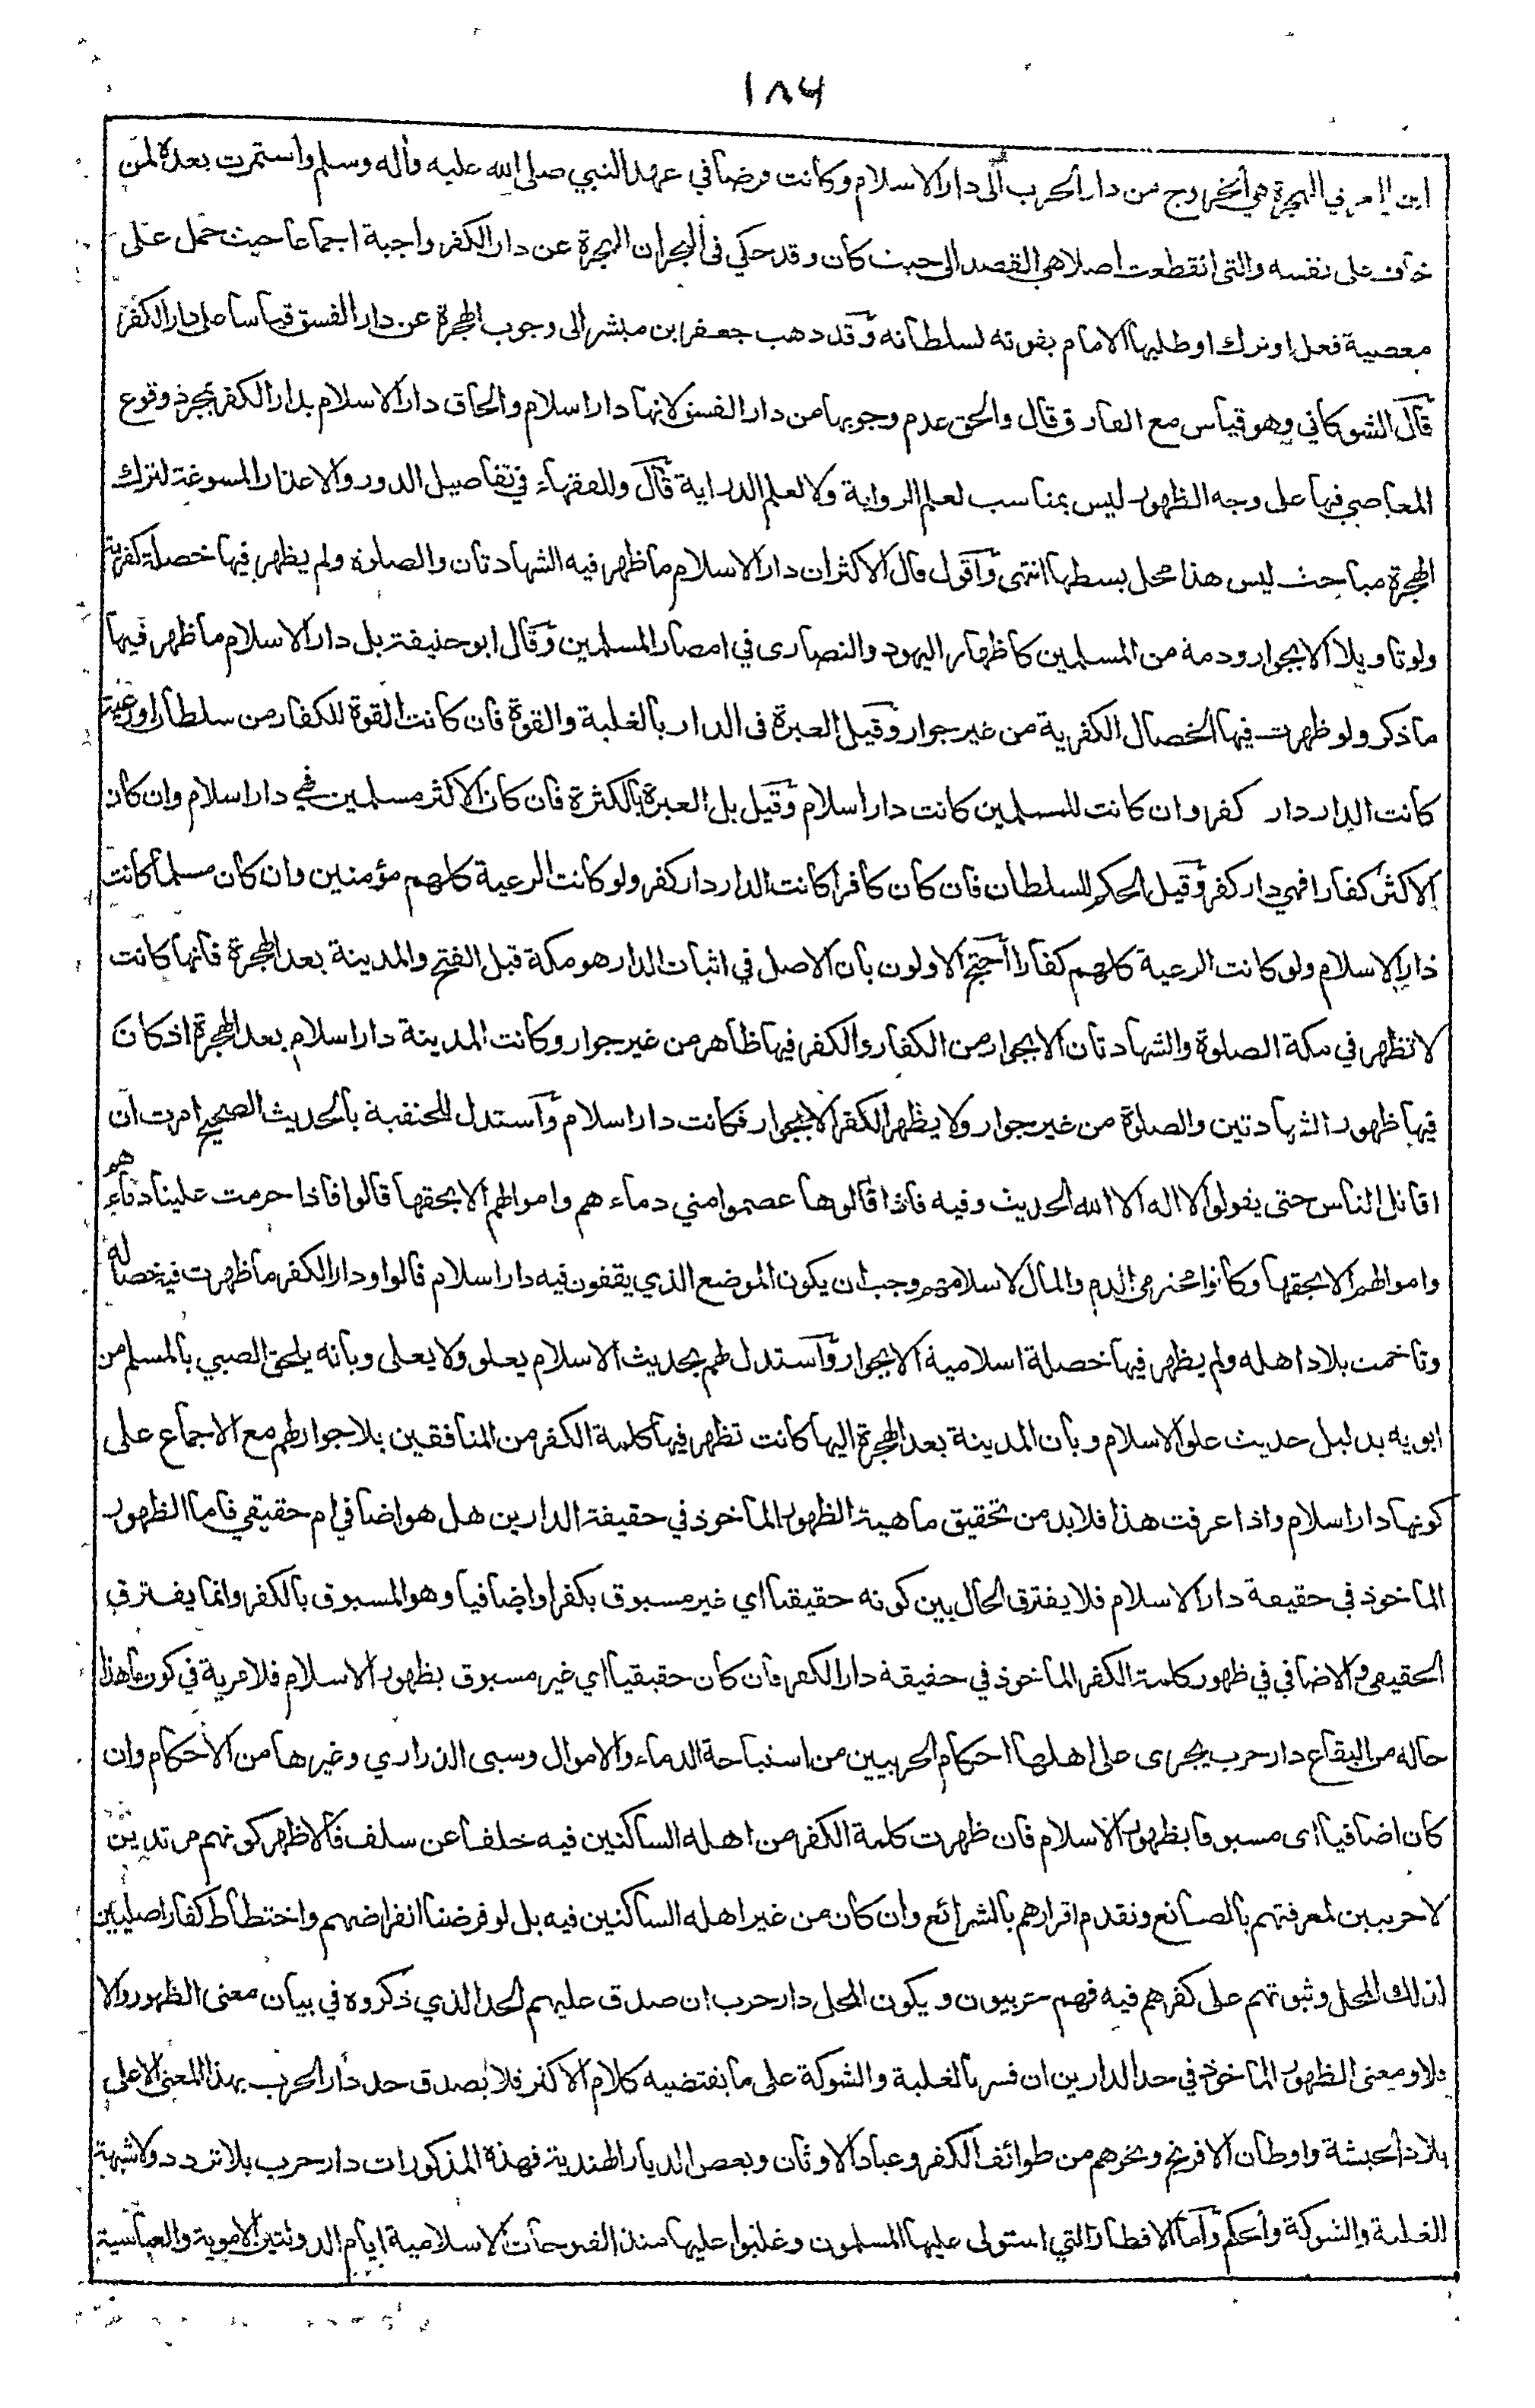 ١٨٤
ابن العربي الهجرة هي الخروج من دار الحرب الى دار الاسلام وكانت فرضا في عهد النبي صلى الله عليه وآله وسلم واستمرت بعده لمن
خاف على نفسه والتي انقطعت اصلا هي القصد الى حيث كان وقد حكي في البحر ان الهجرة عن دار الكفر واجبة اجماعا حيث حمل على
معصية فعل او ترك او طلبها الامام بقوته لسلطانه وقد ذهب جعفر ابن مبشر الى وجوب الهجرة عن دار الفسق قياسا على دار الكفر
قال الشوكاني وهو قياس مع الفارق قال والحق عدم وجوبها من دار الفسق لانها دار اسلام والحاق دار الاسلام بدار الكفر بمجرد وقوع
المعاصي فيها على وجه الظهور ليس بمناسب لعلم الرواية ولا لعلم الدراية قال وللفقهاء في تفاصيل الدور والاعذار المسوغة لترك
الهجرة مباحث ليس هذا محل بسطها انتهى واقول قال الاكثر ان دار الاسلام ما ظهر فيه الشهادتان والصلوة ولم يظهر فيها خصلة كفرية
ولو تاويلا الا بجوار وذمة من المسلمين كاظهار اليهود والنصارى في امصار المسلمين وقال ابو حنيفة بل دار الاسلام ما ظهر فيها
ما ذكر ولو ظهرت فيها الخصال الكفرية من غير جوار وقيل العبرة في الدار بالغلبة والقوة فان كانت القوة للكفار من سلطان او رعية
كانت الدار دار كفر وان كانت للمسلمين كانت دار اسلام وقيل بل العبرة بالكثرة فان كان الاكثر مسلمين فهي دار اسلام وان كان
الاكثر كفارا فهي دار كفر وقيل الحكم للسلطان فان كان كافرا كانت الدار دار كفر ولو كانت الرعية كلهم مؤمنين وان كان مسلما كانت
دار الاسلام ولو كانت الرعية كلهم كفارا احتج الاولون بان الاصل في اثبات الدار هو مكة قبل الفتح والمدينة بعد الهجرة فانها كانت
لا تظهر في مكة الصلوة والشهادتان الا بجوار من الكفار والكفر فيها ظاهر من غير جوار وكانت المدينة دار اسلام بعد الهجرة اذ كان
فيها ظهور الشهادتين والصلوة من غير جوار ولا يظهر الكفر الا بجوار فكانت دار اسلام واستدل للحنفية بالحديث الصحيح امرت ان
اقاتل الناس حتى يقولوا لا اله الا الله الحديث وفيه فاذا قالوها عصموا مني دماءهم واموالهم الا بحقها قالوا فاذا حرمت علينا دماءهم
واموالهم الا بحقها وكانوا محترمي الدم والمال لاسلامهم وجب ان يكون الموضع الذي يقفون فيه دار اسلام قالوا ودار الكفر ما ظهرت فيه خصاله
وتاخمت بلاد اهله ولم يظهر فيها خصلة اسلامية الا بجوار واستدل لهم بحديث الاسلام يعلو ولا يعلى وبانه يلحق الصبي بالمسلم من
ابويه بدليل حديث علو الاسلام وبان المدينة بعد الهجرة اليها كانت تظهر فيها كلمة الكفر من المنافقين بلا جوار لهم مع الاجماع على
كونها دار اسلام واذا عرفت هذا فلا بد من تحقيق ماهية الظهور الماخوذ في حقيقة الدارين هل هو اضافي ام حقيقي فاما الظهور
الماخوذ في حقيقة دار الاسلام فلا يفترق الحال بين كونه حقيقيا اي غير مسبوق بكفر او اضافيا وهو المسبوق بالكفر وانما يفترق
الحقيقي والاضافي في ظهور كلمة الكفر الماخوذ في حقيقة دار الكفر فان كان حقيقيا اي غير مسبوق بظهور الاسلام فلا مرية في كون ما هذا
حاله من البقاع دار حرب يجرى على اهلها احكام الحربيين من استباحة الدماء والاموال وسبى الذراري وغيرها من الاحكام وان
كان اضافيا اى مسبوقا بظهور الاسلام فان ظهرت كلمة الكفر من اهله الساكنين فيه خلفا عن سلف فالاظهر كونهم مرتدين
لا حربيين لمعرفتهم بالصانع وتقدم اقرارهم بالشرائع وان كان من غير اهله الساكنين فيه بل لو فرضنا انقراضهم واختطاط كفار اصليين
لذلك المحل وثبوتهم على كفرهم فيه فهم حربيون ويكون المحل دار حرب ان صدق عليهم الحد الذي ذكروه في بيان معنى الظهور والا
فلا ومعنى الظهور الماخوذ في حد الدارين ان فسر بالغلبة والشوكة على ما يقتضيه كلام الاكثر فلا يصدق حد دار الحرب بهذا المعنى الا على
بلاد الحبشة واوطان الافرنج ونحوهم من طوائف الكفر وعباد الاوثان وبعض الديار الهندية فهذه المذكورات دار حرب بلا تردد ولا شبهة
للغلبة والشوكة والحكم واما الاقطار التي استولى عليها المسلمون وغلبوا عليها منذ الفتوحات الاسلامية ايام الدولتين الاموية والعباسية